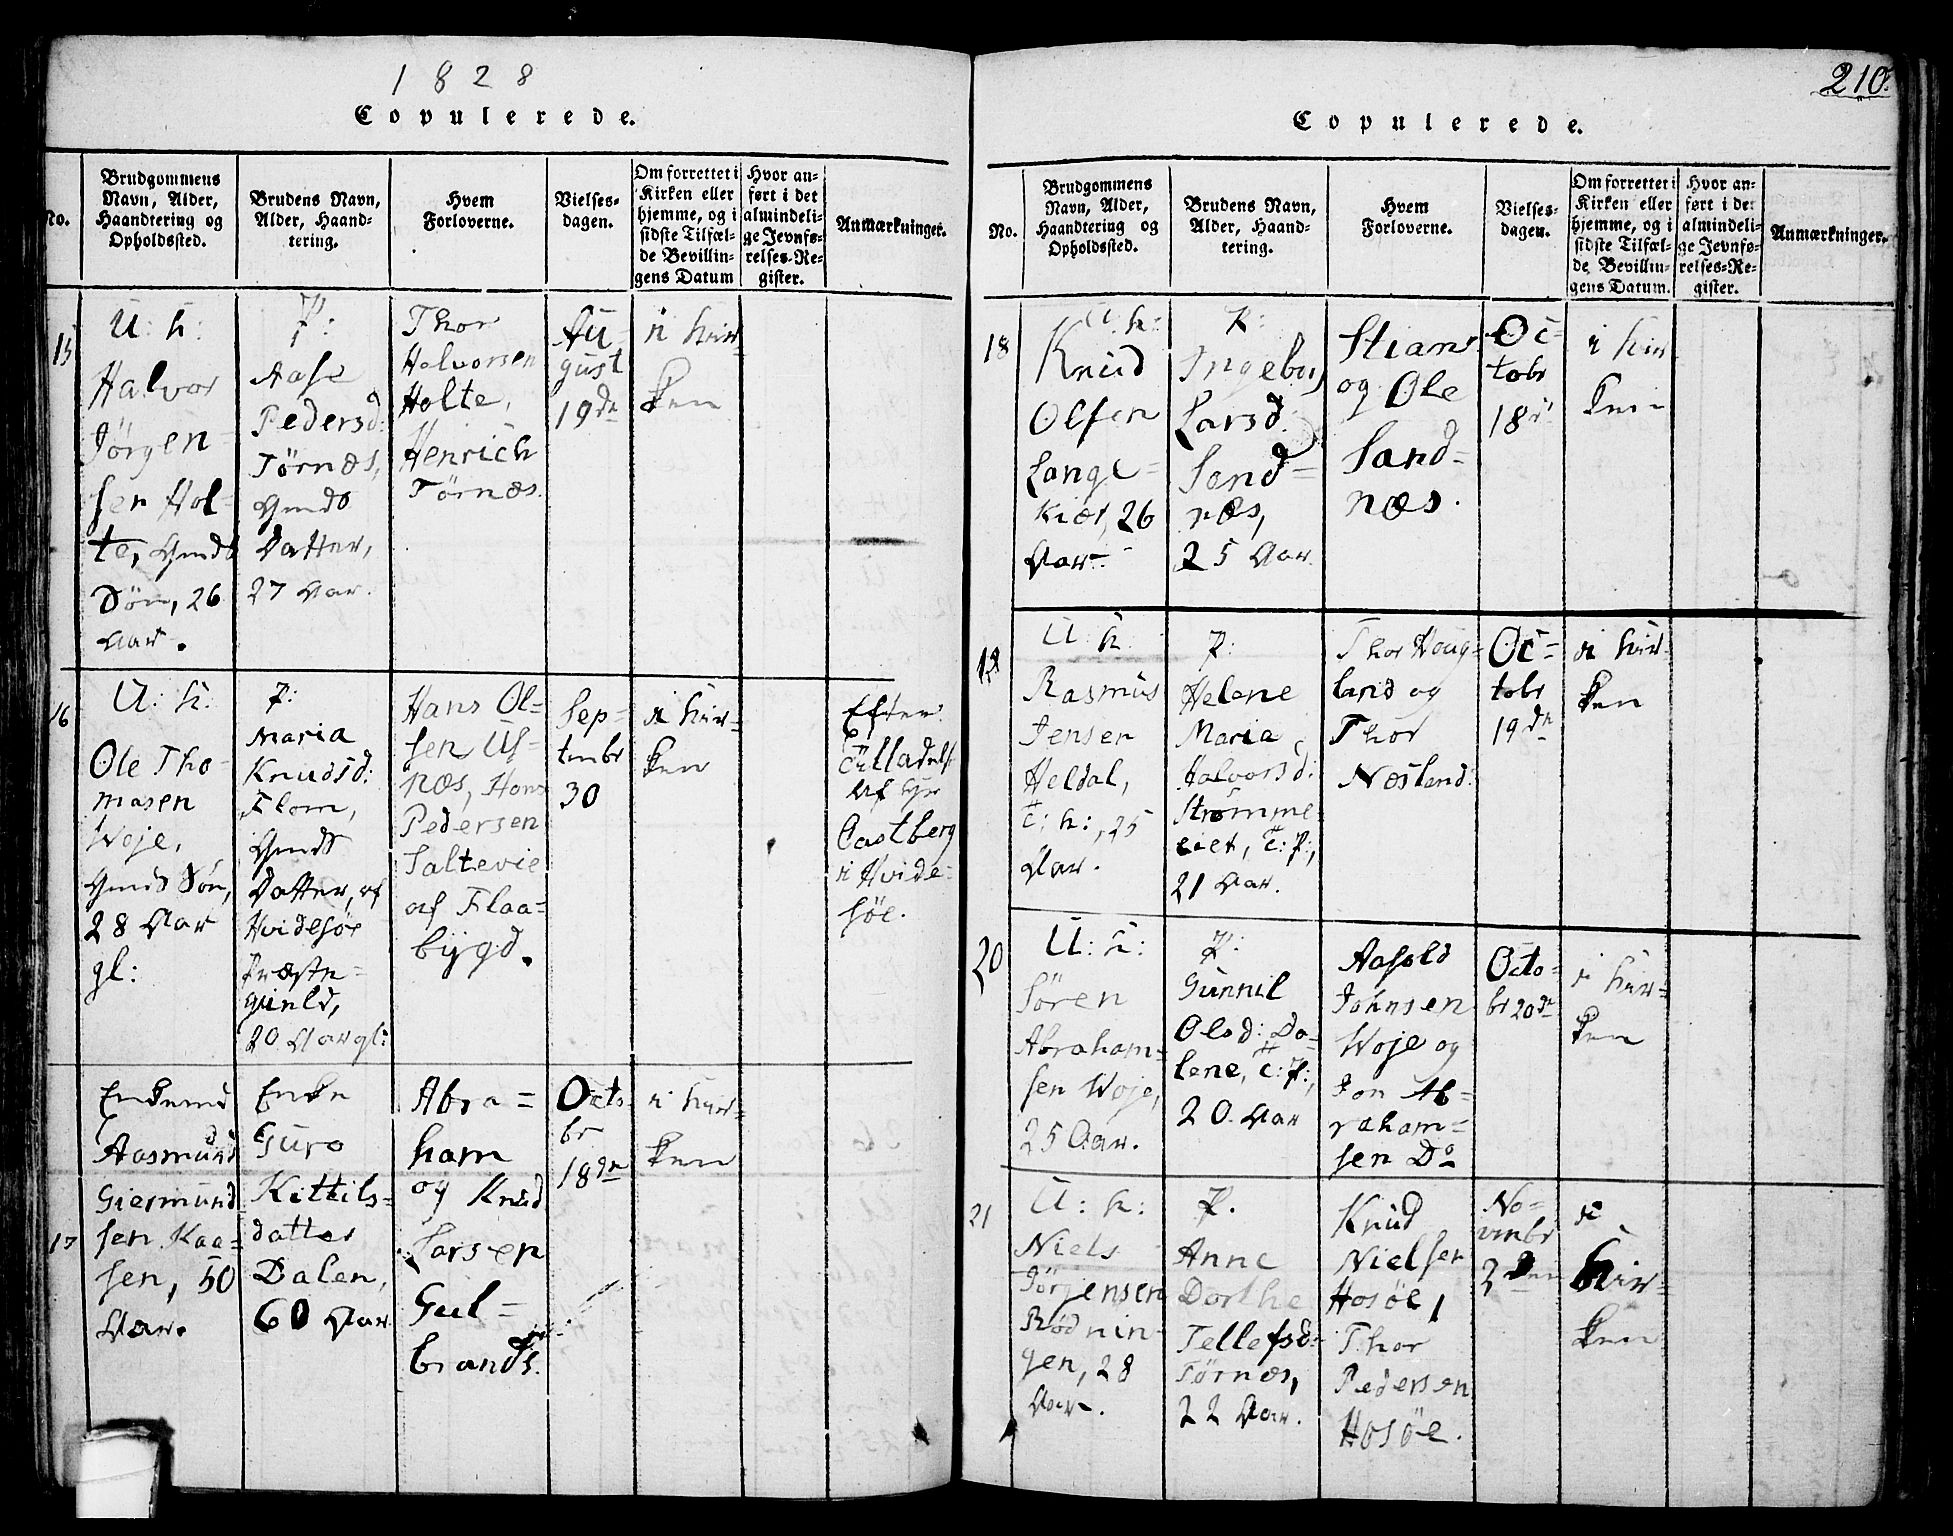 1828
Copulerede.
No.
Brudgommens
Navn, Alder,
Haandtering og
Opholdssted.
Brudens Navn,
Alder, Haand-
tering.
Hvem
Forloverne.
Vielses-
dagen.
Om forrettet i
Kirken eller
hjemme, og i
sidste Tilfæl-
de Bevillin-
gens Datum
Hvor an-
ført i det
almindeli-
ge Jevnfø-
relses-Re-
gister.
Anmærkninger.
15
U: k:
Halvor
Jørgen-
sen Hol-
te, Gmds
Søn, 26
Aar.
P:
Aase
Pedersd:
Tørnæs,
Gmds
Datter,
27 Aar.
Thor
Halvorsen
Holte,
Henrich
Tørnæs.
Au-
gust
19de
i Kir-
ken
16
U: k:
Ole Tho-
masen
Woje,
Gmds Søn,
28 Aar
gl:
P:
Maria
Knudsd:
Flom,
Gmds
Datter, af
Hvidesøe
Præste-
gield,
20 Aar gl:
Hans Ol-
sen Uf-
næs, Hans
Pedersen
Saltevie
af Flaa-
bygd.
Sep-
tembr
30
i Kir-
ken
Efter
Tilladelse
af Hr
Castberg
i Hvide-
søe.
17
Enkemd
Aasmund
Giermund
sen Kaa-
sen, 50
Aar.
Enke
Guro
Kittils-
datter
Dalen,
60 Aar
Abra-
ham
og Knud
Larsen
Gul-
brands.
Octo
br
18de
i Kir-
ken
210.
Copulerede.
No.
Brudgommens
Navn, Alder,
Haandtering og
Opholdssted.
Brudens Navn,
Alder, Haand-
tering.
Hvem
Forloverne.
Vielses-
dagen.
Om forrettet i
Kirken eller
hjemme, og i
sidste Tilfæl-
de Bevillin-
gens Datum.
Hvor an-
ført i det
almindeli-
ge Jevnfø-
relses-Re-
gister.
Anmærkninger.
18
U: k:
Knud
Olsen
Lange-
kiær, 26
Aar.
P:
Ingeborg
Larsd:
Sand-
næs,
25 Aar.
Stian
og Ole
Sand-
næs.
Oc-
tobr
18de
i Kir
ken
19
U: k:
Rasmus
Jensen
Heldal,
T: k:, 25
Aar.
P:
Helene
Maria
Halvorsd:
Strømme-
eiet, T: P:,
21 Aar.
Thor Houg-
land og
Thor
Næsland.
Oc-
tobr
19de
i Kir-
ken
20
U: k:
Sören
Abraham-
sen Woje,
25 Aar.
P:
Gunnil
Olsd: Da-
lene, T: P:,
20 Aar
Aasold
Johnsen
Woje og
Jon Ab-
raham-
sen Do
Octo-
br 20de
i Kir-
ken
21
U: k:
Niels
Jörgensen
Rødnin-
gen, 28
Aar.
P.
Anne
Dorthe
Tellefsd:
Tørnæs,
22 Aar.
Knud
Nielsen
Hosöe,
Thor
Pedersen
Hosöe.
No-
vembr
2den
i
Kir-
ken